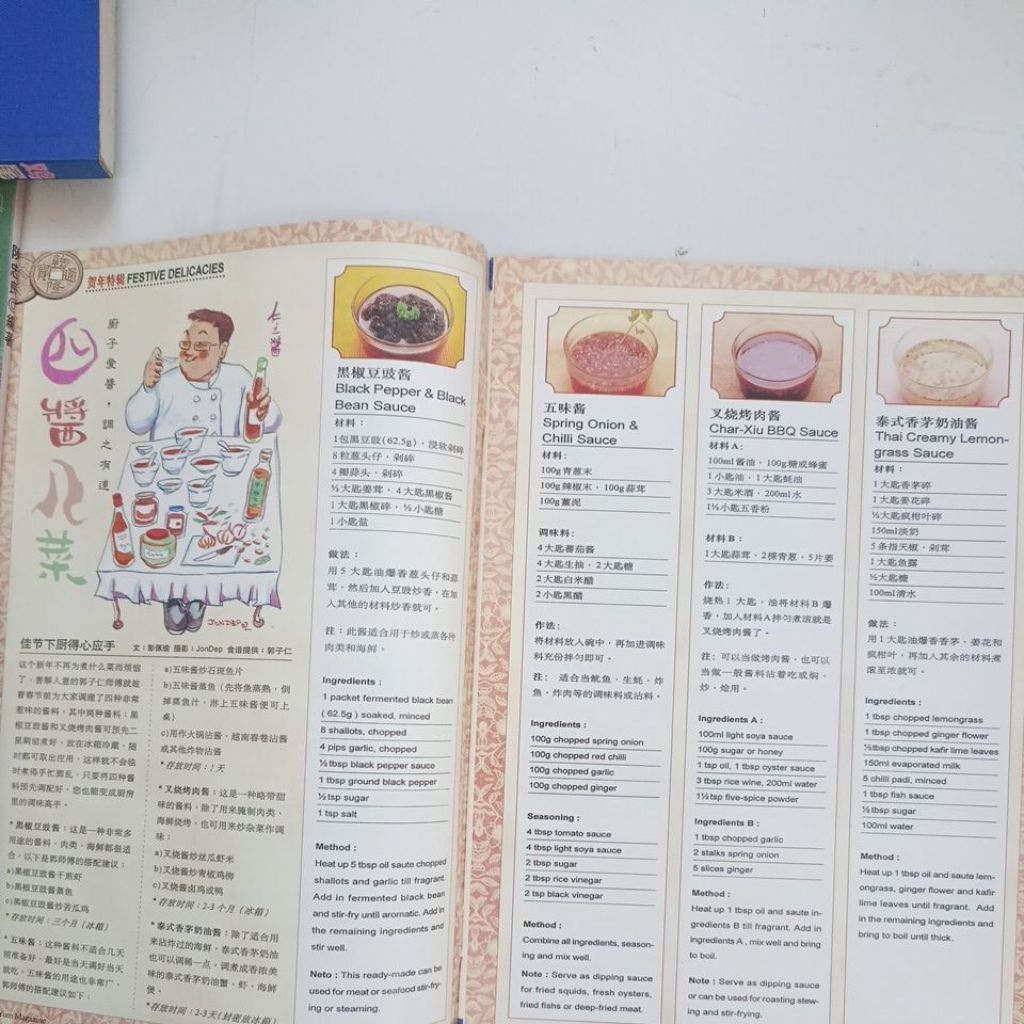 贺年特辑 FESTIVE DELICACIES
四醬八菜
廚子愛醬，調之有道
JONDEP
佳节下厨得心应手
文：彭佩瑜 摄影：JonDep 食谱提供：郭子仁
这个新年不再为煮什么菜而烦恼
了，善解人意的郭子仁师傅就趁
着春节前为大家调理了四种非常
惹味的酱料，其中两种酱料：黑
椒豆豉酱和叉烧烤肉酱可预先二
星期前煮好，放在冰箱冷藏，随
时都可取出应用，这样就不会临
时煮得手忙脚乱，只要将四种酱
料预先调配好，您也能变成厨房
里的调味高手。
* 黑椒豆豉酱：这是一种非常多
用途的酱料，肉类、海鲜都很适
合，以下是郭师傅的搭配建议：
a)黑椒豆豉酱干煎虾
b)黑椒豆豉酱蒸鱼
c)黑椒豆豉酱炒苦瓜鸡
* 存放时间：三个月（冰箱）
* 五味酱：这种酱料不适合几天
前准备好，最好是当天调好当天
就吃，五味酱的用途也非常广，
郭师傅的搭配建议如下：
a)五味酱炒石斑鱼片
b)五味酱蒸鱼（先将鱼蒸熟，倒
掉蒸鱼汁，淋上五味酱便可上
桌）
c)用作火锅沾酱，越南春卷沾酱
或其他炸物沾酱
* 存放时间：1天
* 叉烧烤肉酱：这是一种略带甜
味的酱料，除了用来腌制肉类、
海鲜烧烤，也可用来炒杂菜作调
味：
a)叉烧酱炒丝瓜虾米
b)叉烧酱炒青椒鸡柳
c)叉烧酱卤鸡或鸭
* 存放时间：2-3个月（冰箱）
* 泰式香茅奶油酱：除了适合用
来沾炸过的海鲜，泰式香茅奶油
也可以调稀一点，调煮成香浓美
味的泰式香茅奶油蟹、虾、海鲜
煲。
* 存放时间：2-3天(封密放冰箱)
Yum Magazine
黑椒豆豉酱
Black Pepper & Black
Bean Sauce
材料：
1包黑豆豉(62.5g)，浸软剁碎
8粒葱头仔，剁碎
4瓣蒜头，剁碎
½大匙姜茸，4大匙黑椒酱
1大匙黑椒碎，½小匙糖
1小匙盐
做法：
用5大匙油爆香葱头仔和蒜
茸，然后加入豆豉炒香，在加
入其他的材料炒香就可。
注：此酱适合用于炒或蒸各种
肉类和海鲜。
Ingredients :
1 packet fermented black bean
( 62.5g ) soaked, minced
8 shallots, chopped
4 pips garlic, chopped
½ tbsp black pepper sauce
1 tbsp ground black pepper
½ tsp sugar
1 tsp salt
Method :
Heat up 5 tbsp oil saute chopped
shallots and garlic till fragrant.
Add in fermented black bean
and stir-fry until aromatic. Add in
the remaining ingredients and
stir well.
Neto : This ready-made can be
used for meat or seafood stir-fry-
ing or steaming.
五味酱
Spring Onion &
Chilli Sauce
材料：
100g青葱末
100g辣椒末，100g蒜茸
100g薑泥
调味料：
4大匙蕃茄酱
4大匙生抽，2大匙糖
2大匙白米醋
2小匙黑醋
作法：
将材料放入碗中，再加进调味
料充份拌匀即可。
注： 适合当鱿鱼，生蚝、炸
鱼，炸肉等的调味料或沾料。
Ingredients :
100g chopped spring onion
100g chopped red chilli
100g chopped garlic
100g chopped ginger
Seasoning :
4 tbsp tomato sauce
4 tbsp light soya sauce
2 tbsp sugar
2 tbsp rice vinegar
2 tsp black vinegar
Method :
Combine all ingredients, season-
ing and mix well.
Note : Serve as dipping sauce
for fried squids, fresh oysters,
fried fishs or deep-fried meat.
叉烧烤肉酱
Char-Xiu BBQ Sauce
材料A：
100ml酱油，100g糖或蜂蜜
1小匙油，1大匙蚝油
3大匙米酒，200ml水
1½小匙五香粉
材料B：
1大匙蒜茸，2棵青葱，5片姜
作法：
烧热1大匙，油将材料B爆
香，加入材料A拌匀煮滚就是
叉烧烤肉酱了。
注：可以当做烤肉酱，也可以
当做一般酱料沾着吃或焖、
炒、烩用。
Ingredients A :
100ml light soya sauce
100g sugar or honey
1 tsp oil, 1 tbsp oyster sauce
3 tbsp rice wine, 200ml water
1½ tsp five-spice powder
Ingredients B :
1 tbsp chopped garlic
2 stalks spring onion
5 slices ginger
Method :
Heat up 1 tbsp oil and saute in-
gredients B till fragrant. Add in
ingredients A , mix well and bring
to boil.
Note : Serve as dipping sauce
or can be used for roasting stew-
ing and stir-frying.
泰式香茅奶油酱
Thai Creamy Lemon-
grass Sauce
材料：
1大匙香茅碎
1大匙姜花碎
½大匙疯柑叶碎
150ml淡奶
5条指天椒，剁茸
1大匙鱼露
½大匙糖
100ml清水
做法：
用1大匙油爆香香茅、姜花和
疯柑叶，再加入其余的材料煮
滚至浓就可。
Ingredients :
1 tbsp chopped lemongrass
1 tbsp chopped ginger flower
½ tbsp chopped kafir lime leaves
150ml evaporated milk
5 chilli padi, minced
1 tbsp fish sauce
½ tbsp sugar
100ml water
Method :
Heat up 1 tbsp oil and saute lem-
ongrass, ginger flower and kafir
lime leaves until fragrant. Add
in the remaining ingredients and
bring to boil until thick.